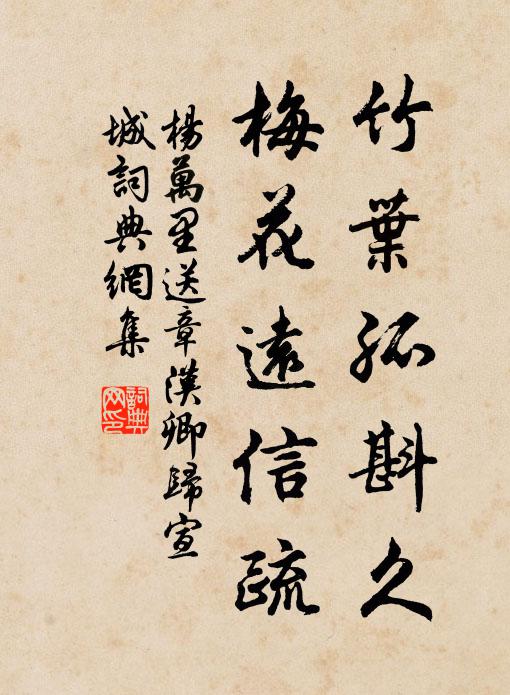 竹葉孤斟久
梅花遠信疏
楊萬里送章漢卿歸宣
城詞典網集
詞典
网印